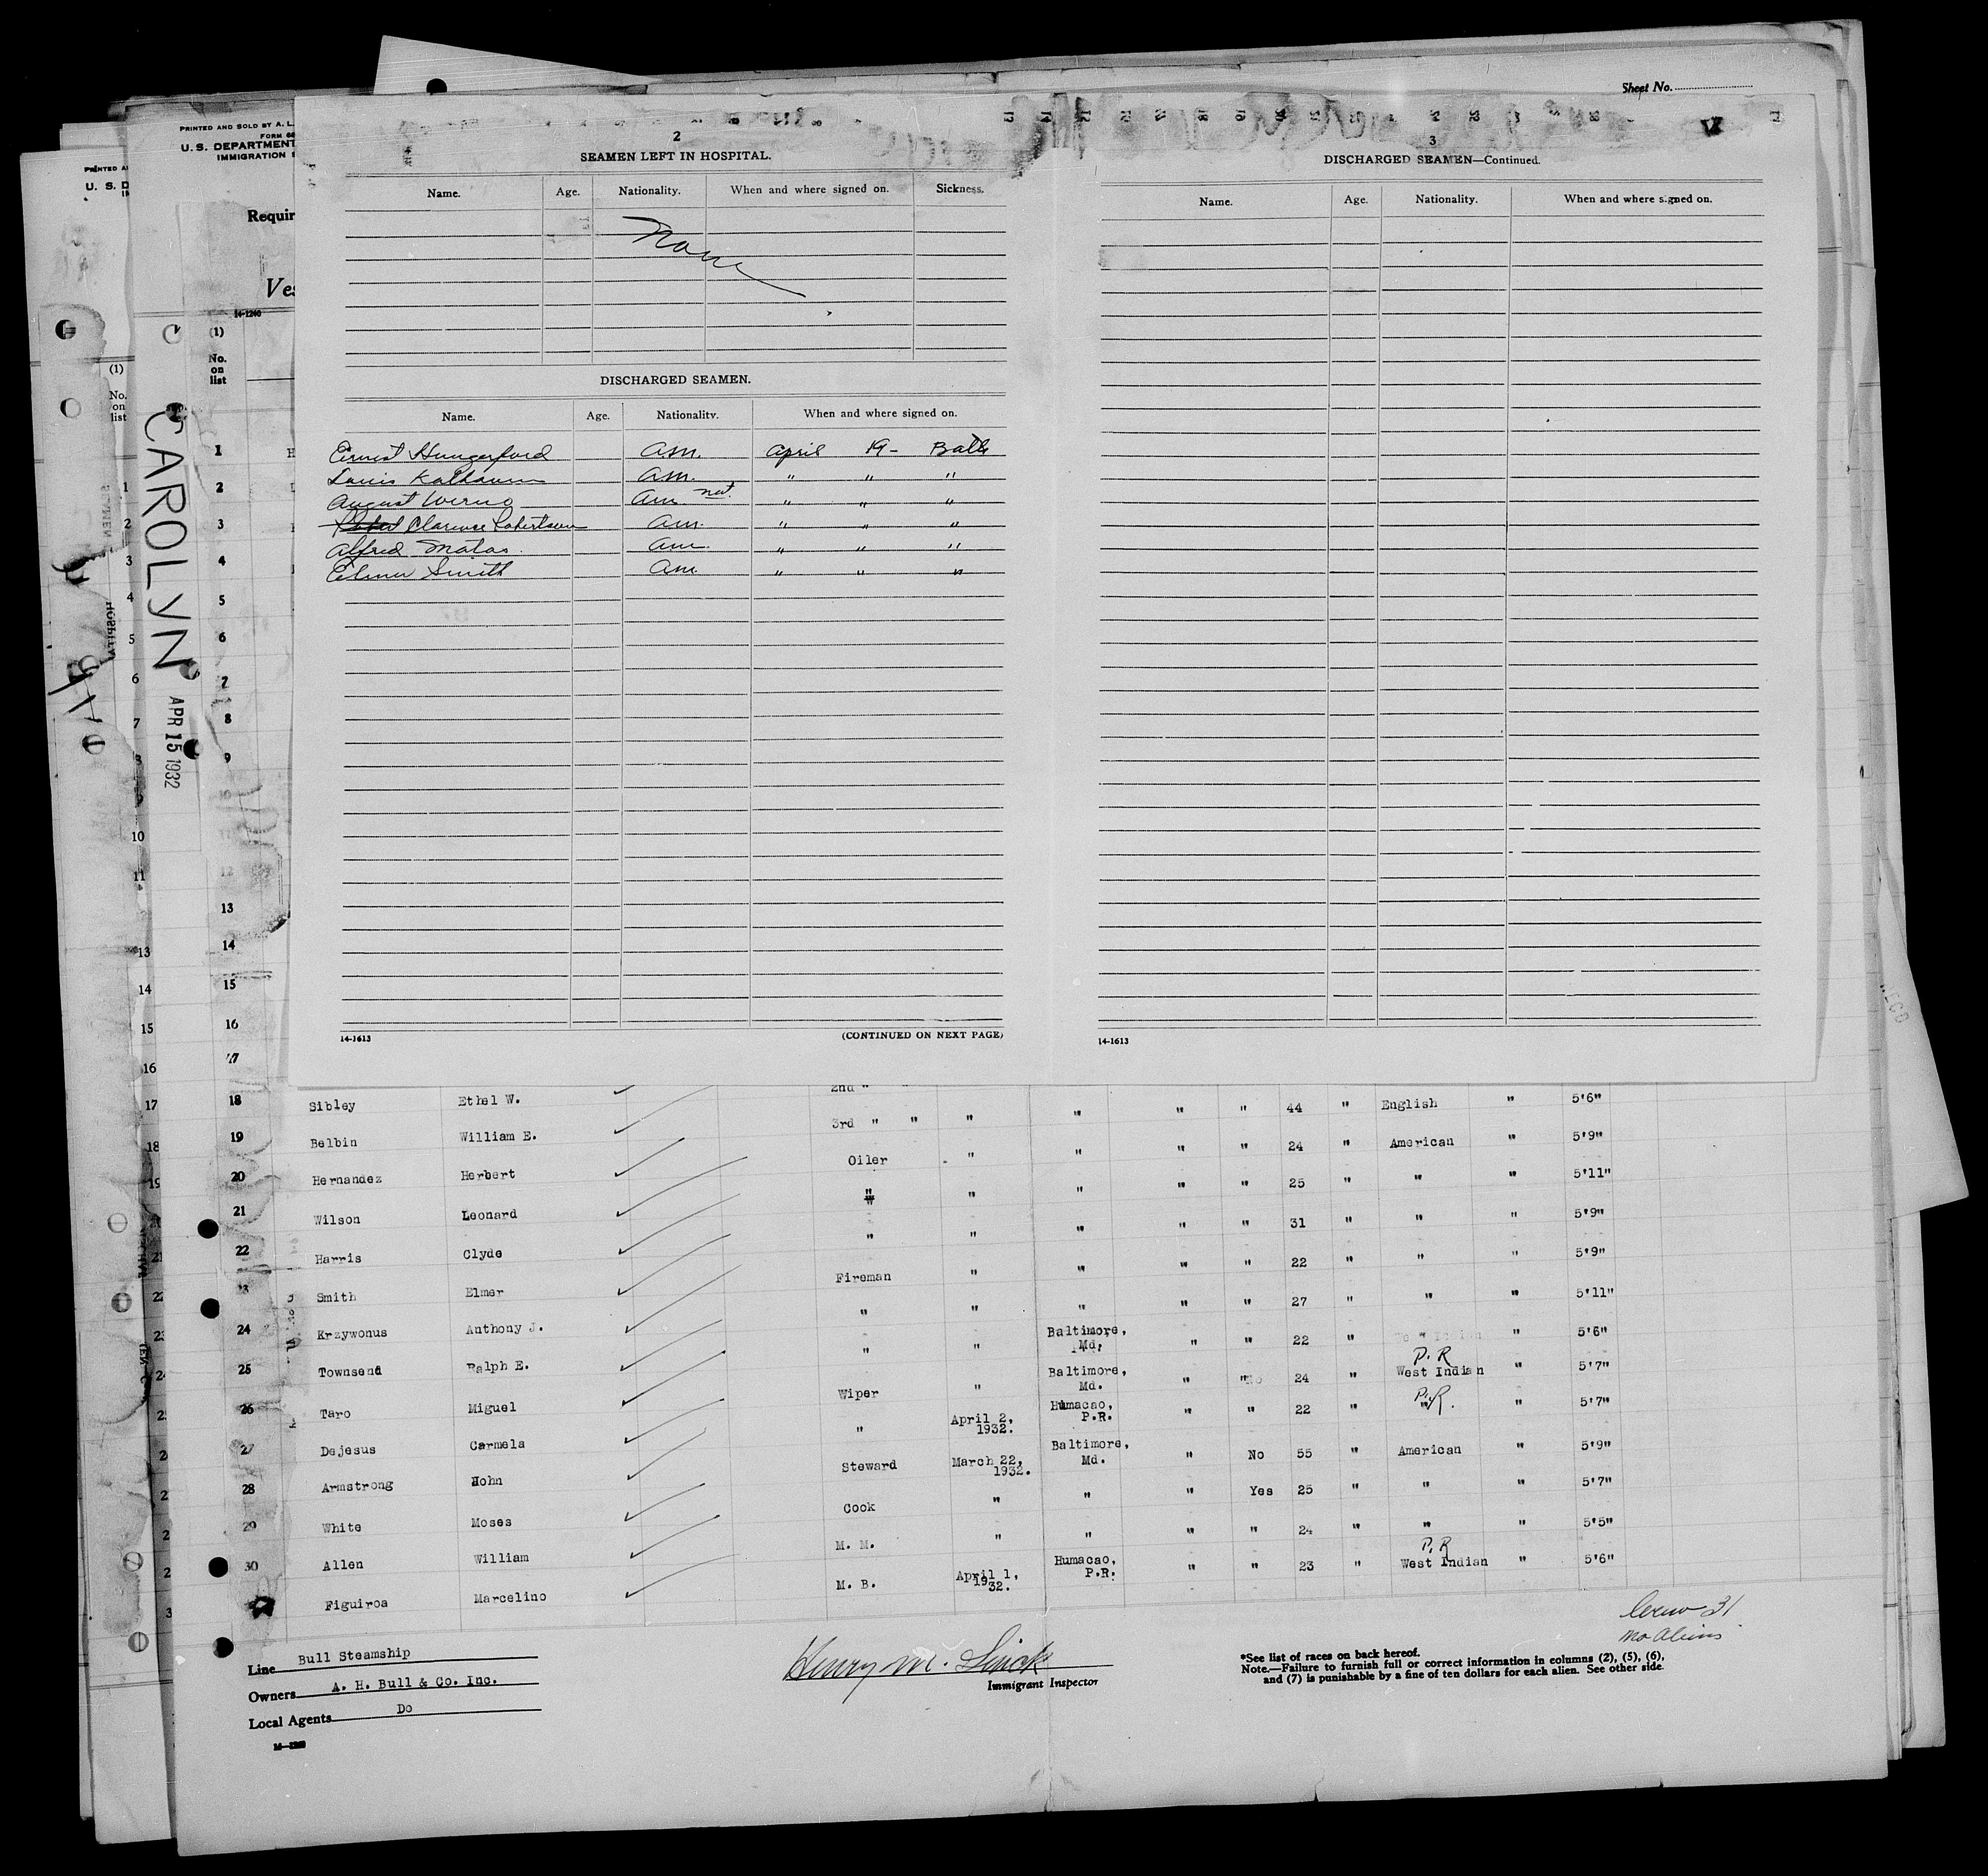 Sheet No.
PRINTED AND SOLD BY A. L.
U. S. DEPARTMENT
IMMIGRATION
PRINTED A
U. S. D
Requir
Ves
14-1240
(1)
No.
on
list
(1)
No.
on
list
CAROLYN
APR 15 1932
2
SEAMEN LEFT IN HOSPITAL.
Name. Age. Nationality. When and where signed on. Sickness.
None
DISCHARGED SEAMEN.
Name. Age. Nationality. When and where signed on.
Ernest Hungerford Am. April 19- Balto
Louis Am. " " "
August Werno Am nat. " " "
Clarence Robertson Am. " " "
Alfred Matos. Am. " " "
Elmer Smith Am " " "
14-1613 (CONTINUED ON NEXT PAGE)
3
DISCHARGED SEAMEN—Continued.
Name. Age. Nationality. When and where signed on.
14-1613
1
2
3
4
5
6
7
8
9
13
14
15
16
17
2nd "
18 Sibley Ethel W. 3rd " " " " " " 44 " English " 5'6"
19 Belbin William E. Oiler " " " " 24 " American " 5'9"
20 Hernandez Herbert " " " " " 25 " " " 5'11"
21 Wilson Leonard " " " " " 31 " " " 5'9"
22 Harris Clyde Fireman " " " " 22 " " " 5'9"
23 Smith Elmer " " " " " 27 " " " 5'11"
24 Krzywonus Anthony J. " " Baltimore, Md. " " 22 " " 5'6"
P.R
25 Townsend Ralph E. Wiper " Baltimore, Md. " " 24 " West Indian " 5'7"
26 Taro Miguel " April 2, 1932. Humacao, P.R. " " 22 " " P.R. " 5'7"
27 Dejesus Carmela Steward March 22, 1932. Baltimore, Md. " No 55 " American " 5'9"
28 Armstrong John Cook " " " Yes 25 " " " 5'7"
29 White Moses M. M. " " " " 24 " " " 5'5"
P.R
30 Allen William M. B. April 1, 1932. Humacao, P.R. " " 23 " West Indian " 5'6"
Figuiroa Marcelino
Crew 31
No Aliens
Line Bull Steamship
Owners A. H. Bull & Co. Inc.
Local Agents Do
Henry M.
Immigrant Inspector
*See list of races on back hereof.
Note.—Failure to furnish full or correct information in columns (2), (5), (6),
and (7) is punishable by a fine of ten dollars for each alien. See other side.